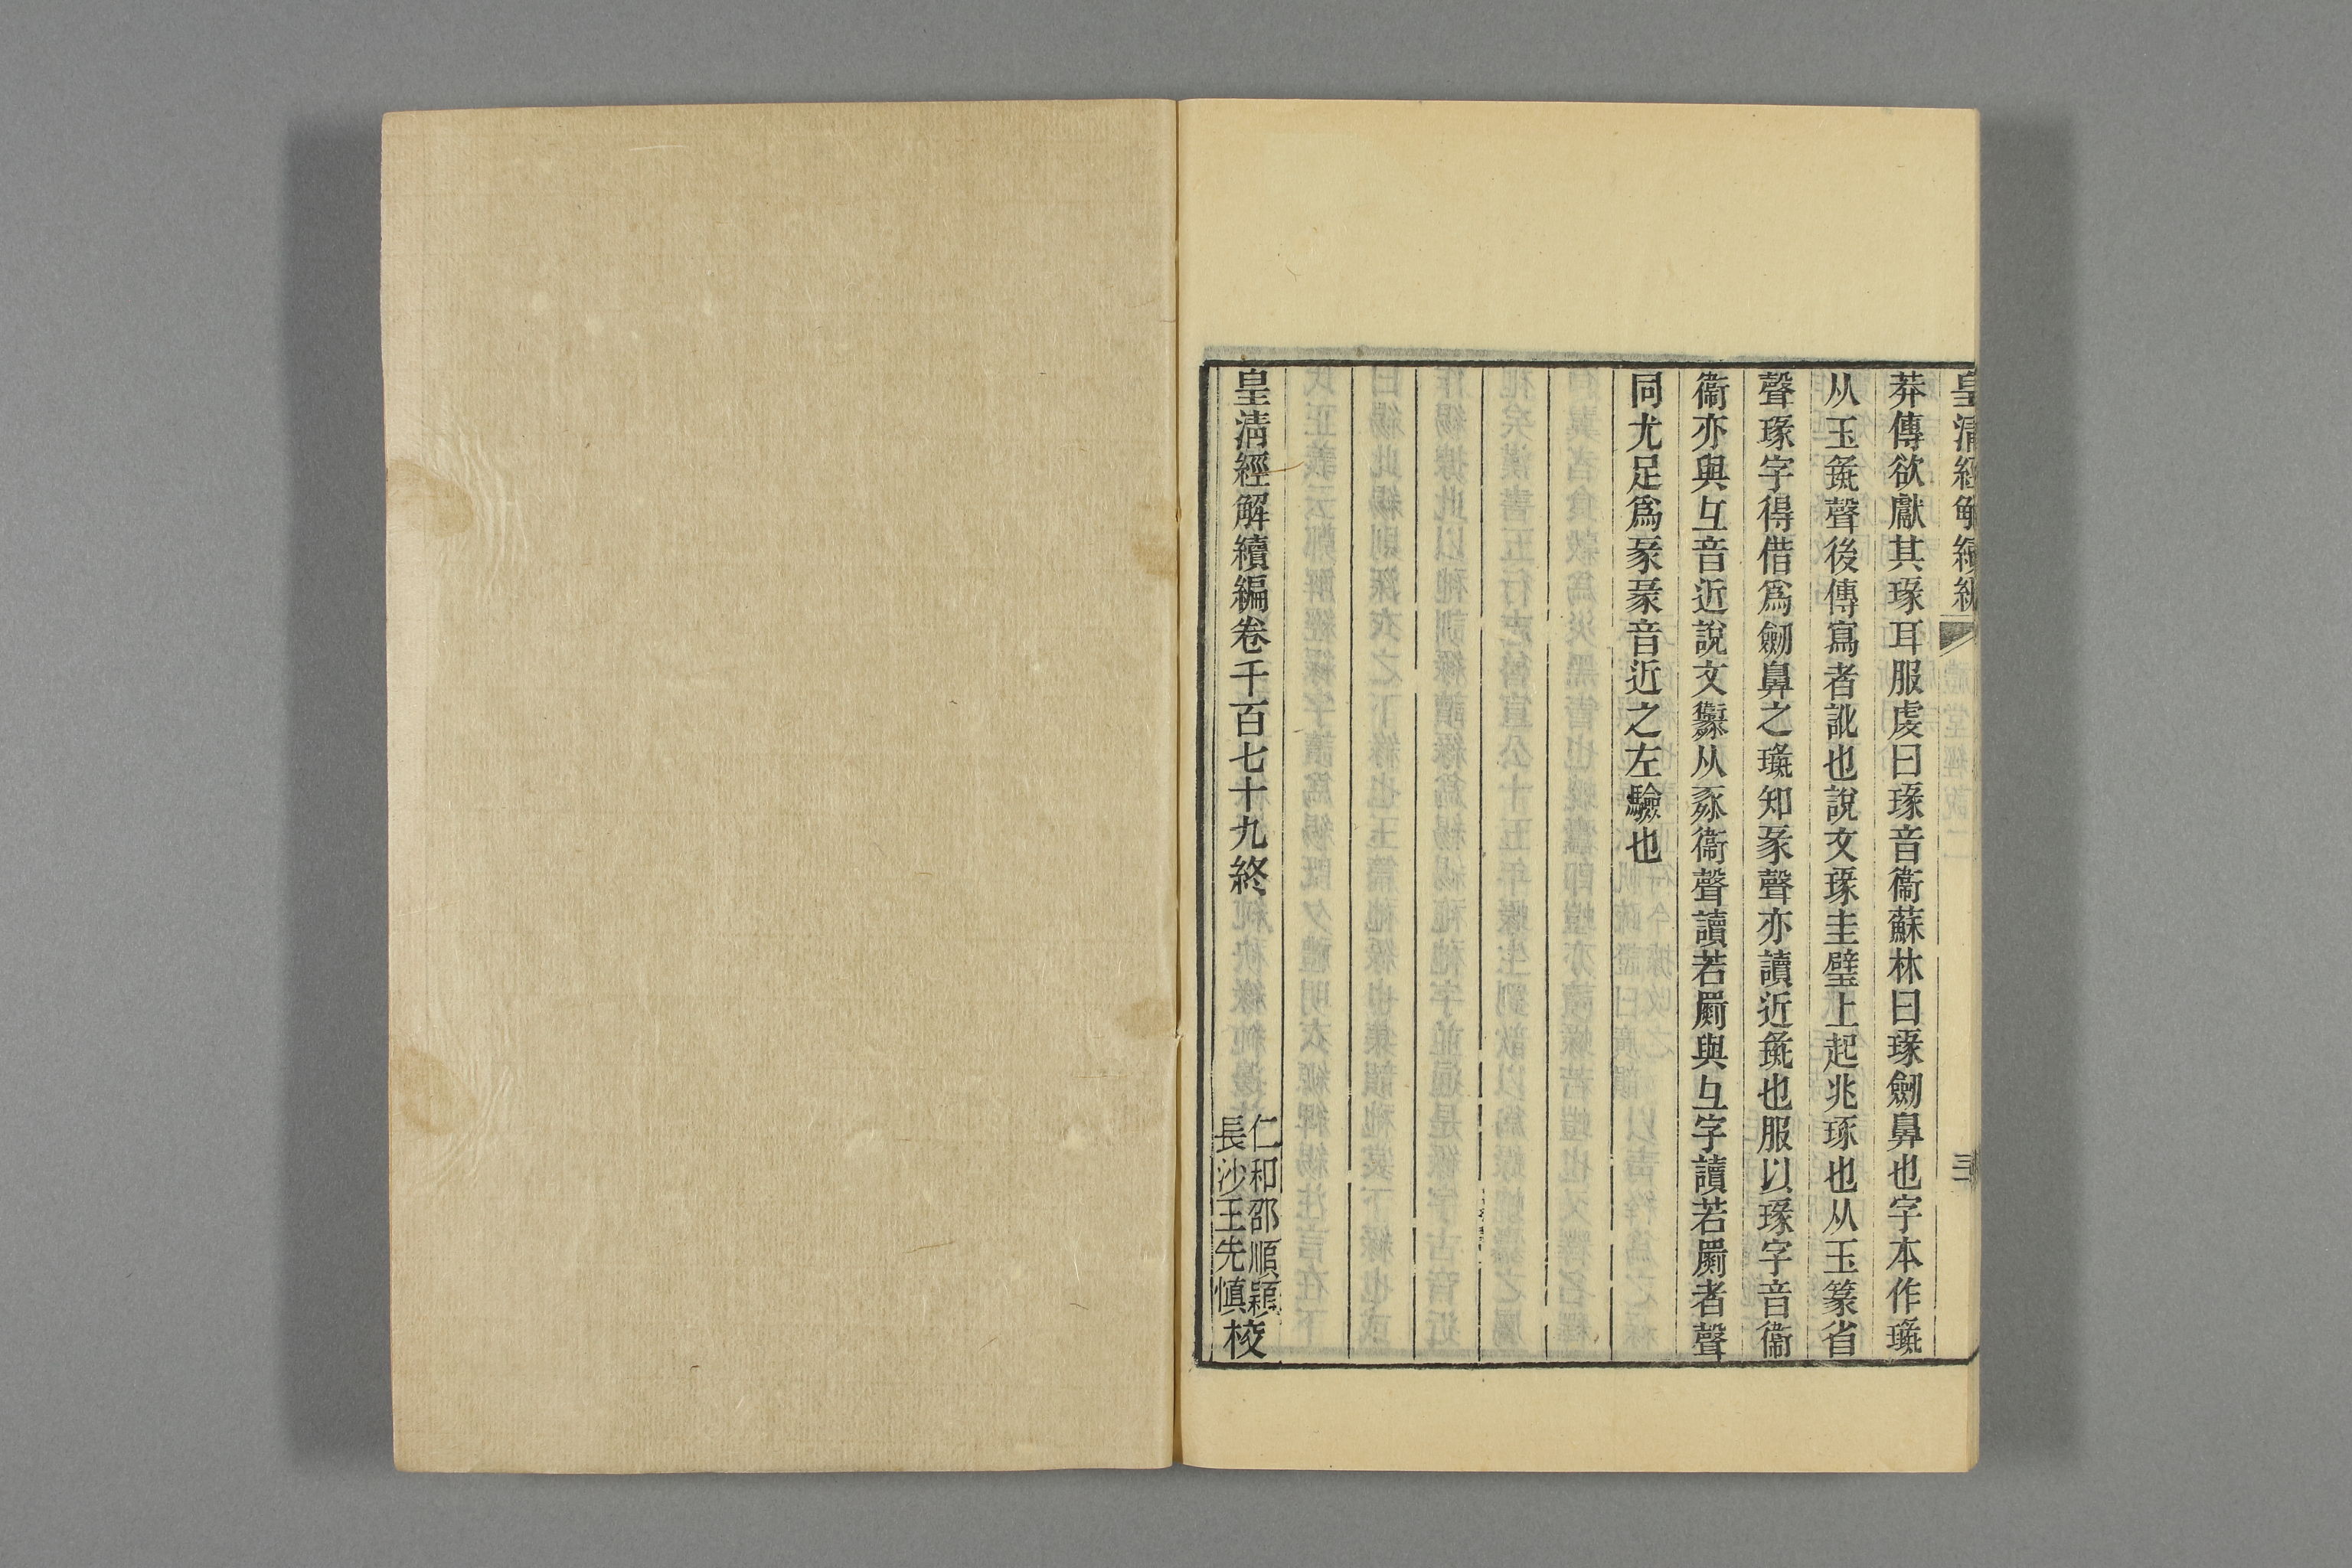 皇清經解續編 禮堂經說二 三
莽傳欲獻其瑑耳服虔曰瑑音衞蘇林曰瑑劒鼻也字本作璏
从玉彘聲後傳寫者訛也說文瑑圭璧上起兆瑑也从玉篆省
聲瑑字得借爲劒鼻之璏知彖聲亦讀近彘也服以瑑字音衞
衞亦與彑音近說文䝐从豩衞聲讀若罽與彑字讀若罽者聲
同尤足爲彖彖音近之左驗也
皇清經解續編卷千百七十九終
仁和邵順穎
長沙王先慎校